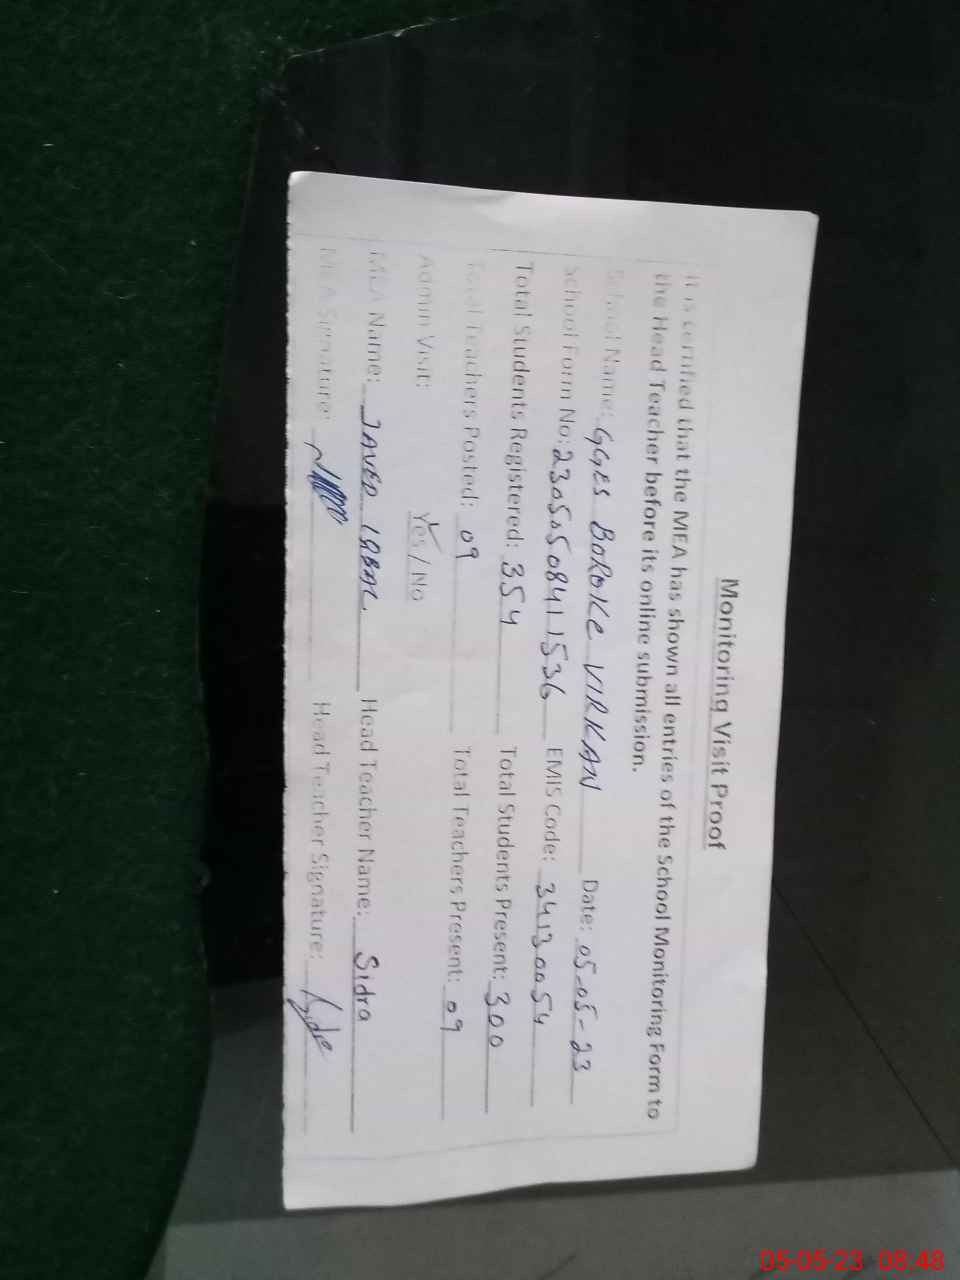 Monitoring Visit Proof
It is certified that the MEA has shown all entries of the School Monitoring Form to
the Head Teacher before its online submission.
School Name: GGES BOROKE VIRKAN Date: 05-05-23
School Form No: 23050508411536 EMIS Code: 34130054
Total Students Registered: 354 Total Students Present: 300
Total Teachers Posted: 09 Total Teachers Present: 09
Admin Visit: Yes / No
MEA Name: JAVED IQBAL Head Teacher Name: Sidra
MEA Signature: Head Teacher Signature:
05-05-23 08:48